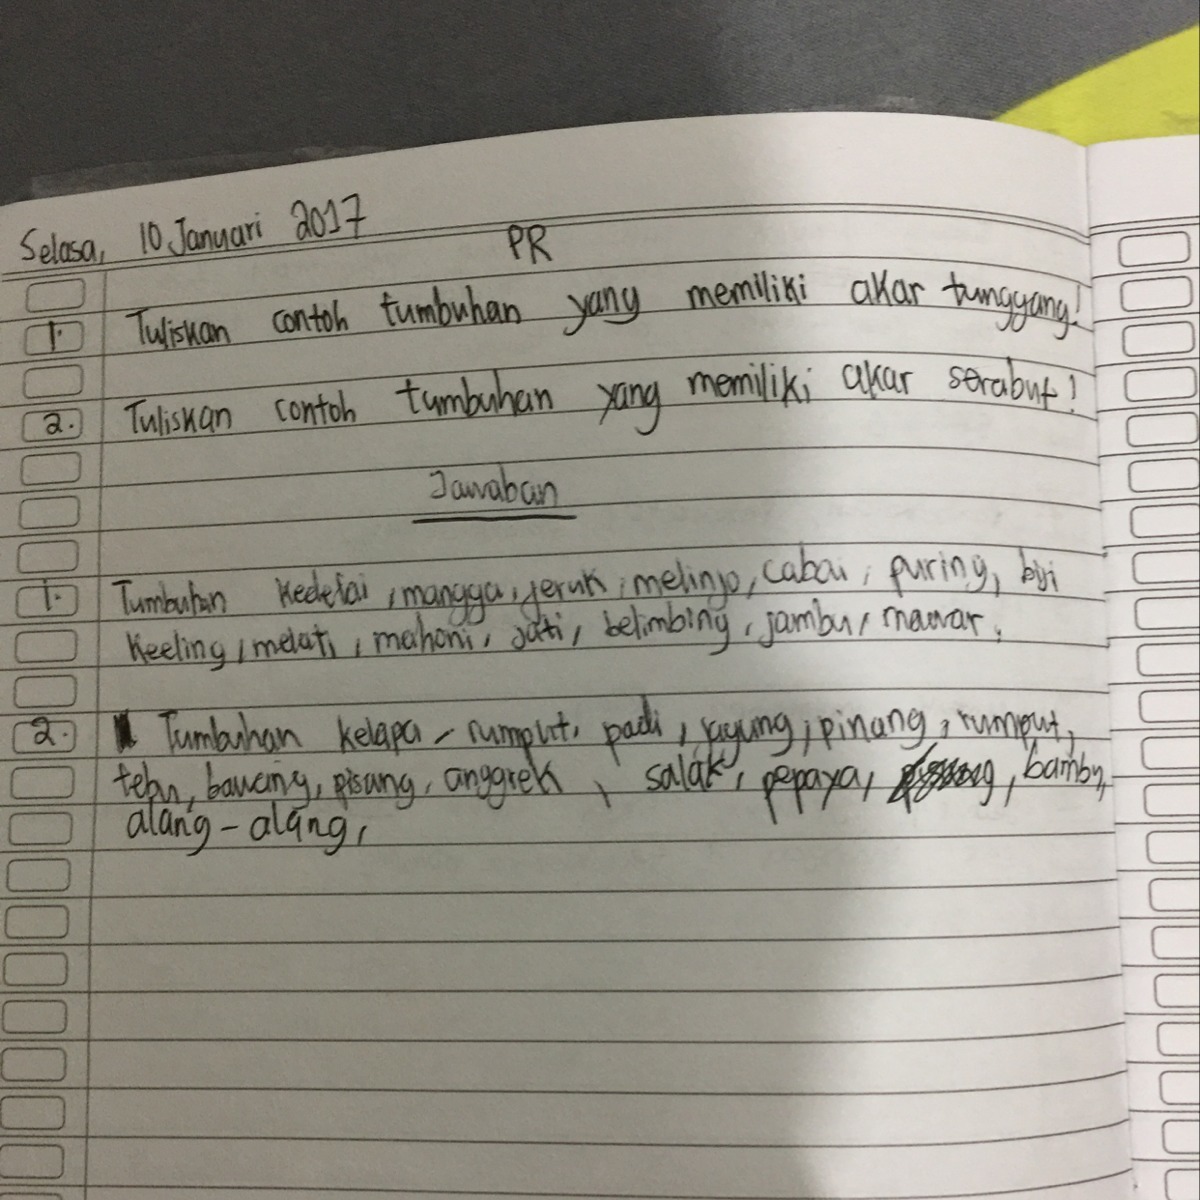 Selasa, 10 Januari 2017
PR
1. Tuliskan contoh tumbuhan yang memiliki akar tunggang!
2. Tuliskan contoh tumbuhan yang memiliki akar serabut!
Jawaban
1. Tumbuhan kedelai, mangga, jeruk, melinjo, cabai, puring, biji
keeling, melati, mahoni, jati, belimbing, jambu, mawar,
2. Tumbuhan kelapa, rumput, padi, jagung, pinang, rumput,
tebu, bawang, pisang, anggrek, salak, pepaya, bambu,
alang-alang,